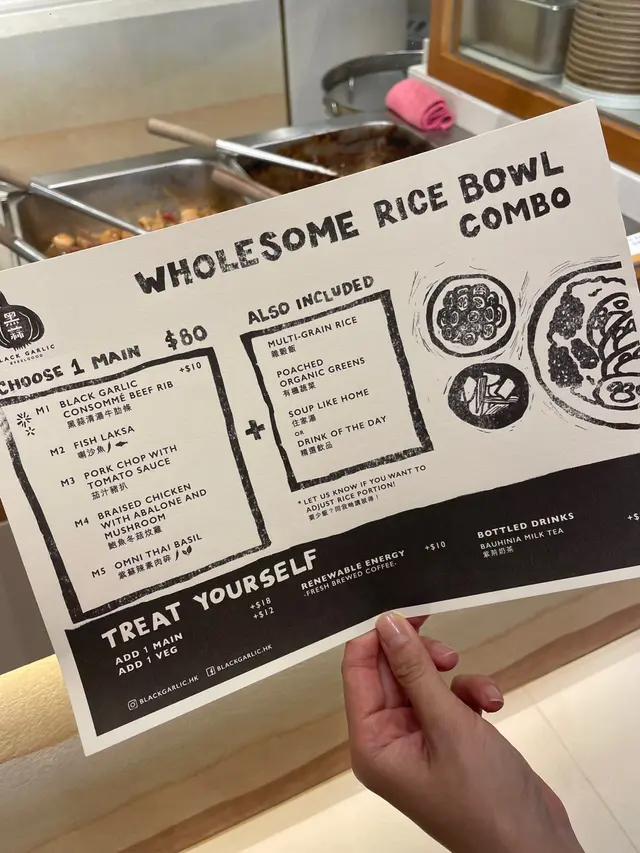 WHOLESOME RICE BOWL
COMBO
黑蒜
BLACK GARLIC
CHOOSE 1 MAIN $80
+$10
M1 BLACK GARLIC
CONSOMMÉ BEEF RIB
黑蒜清湯牛肋條
M2 FISH LAKSA
喇沙魚
M3 PORK CHOP WITH
TOMATO SAUCE
茄汁豬扒
M4 BRAISED CHICKEN
WITH ABALONE AND
MUSHROOM
鮑魚冬菇炆雞
M5 OMNI THAI BASIL
紫蘇辣素肉碎
+
ALSO INCLUDED
MULTI-GRAIN RICE
雜穀飯
POACHED
ORGANIC GREENS
有機蔬菜
SOUP LIKE HOME
住家湯
OR
DRINK OF THE DAY
精選飲品
* LET US KNOW IF YOU WANT TO
ADJUST RICE PORTION!
TREAT YOURSELF
ADD 1 MAIN +$18
ADD 1 VEG +$12
RENEWABLE ENERGY +$10
-FRESH BREWED COFFEE-
BOTTLED DRINKS
BAUHINIA MILK TEA
紫荊奶茶
BLACKGARLIC.HK BLACKGARLIC.HK